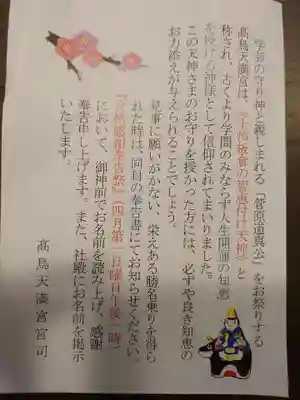 学芸の守り神と親しまれる「菅原道真公」をお祭りする
高鳥天満宮は、《十倍
の智恵付け天神》と
称され、古くより学問のみならず人生開運の知恵
を授ける神様として信仰されてまいりました。
この天神さまのお守りを授かった方には、必ずや良き知恵の
お力添えが与えられることでしょう。
見事に願いがかない、栄えある勝名乗りを得ら
れた時は、同封の奉告書にてお知らせください。
奉告祭』(四月第一日曜日午後一時)
において、御神前でお名前を読み上げ、感謝
奉告申し上げます。また、社殿にお名前を掲示
いたします。
高鳥天満宮宮司